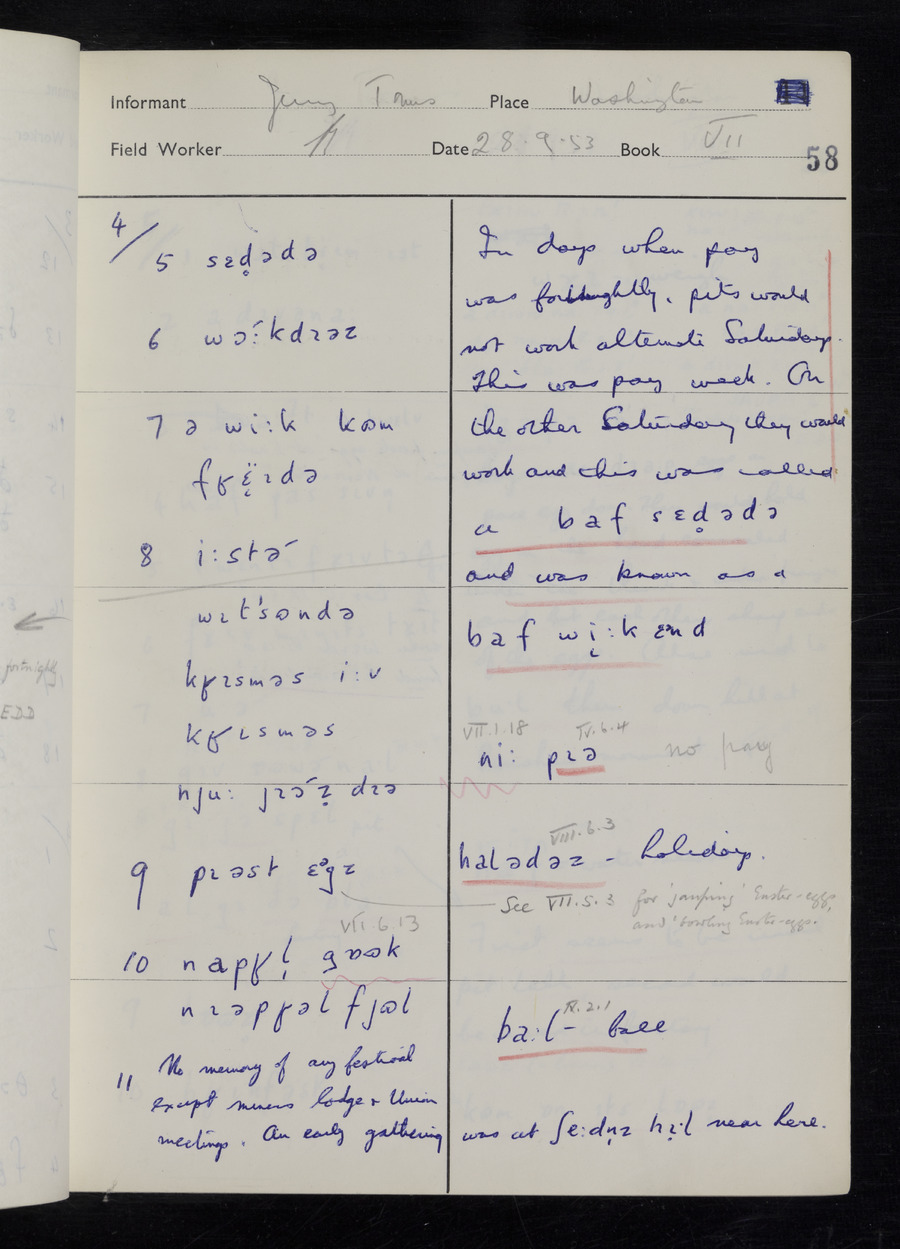 Informant Place Washington
Field Worker Date 28.9.53 Book VII
58
4/
5 sɛd̥ədə
6 wɔ́:kdɪəz
7 ə wi:k kɷm
8 i:stə́
wɪt'sɷndə
kʁɪsməs i:v
kʁɪsməs
nju: jɪə́z̥ dɪə
9 pɪəst
VII.6.13
10
11 No memory of any festival
except miners lodge & Union
meetings. An early gathering
In days when pay
was fortnightly, pits would
not work alternate Saturdays.
This was pay week. On
the other Saturday they would
work and this was called
a baf sɛd̥ədə
and was known as a
baf wi̜:k
VII.1.18 IV.6.4
ni: pɪə no pay
VIII.6.3
halədəz - holidays.
See VII.5.3 for 'jauping' Easter-eggs,
and 'bowling Easter-eggs.'
ba:l - ball
was at near here.
fortnightly
EDD